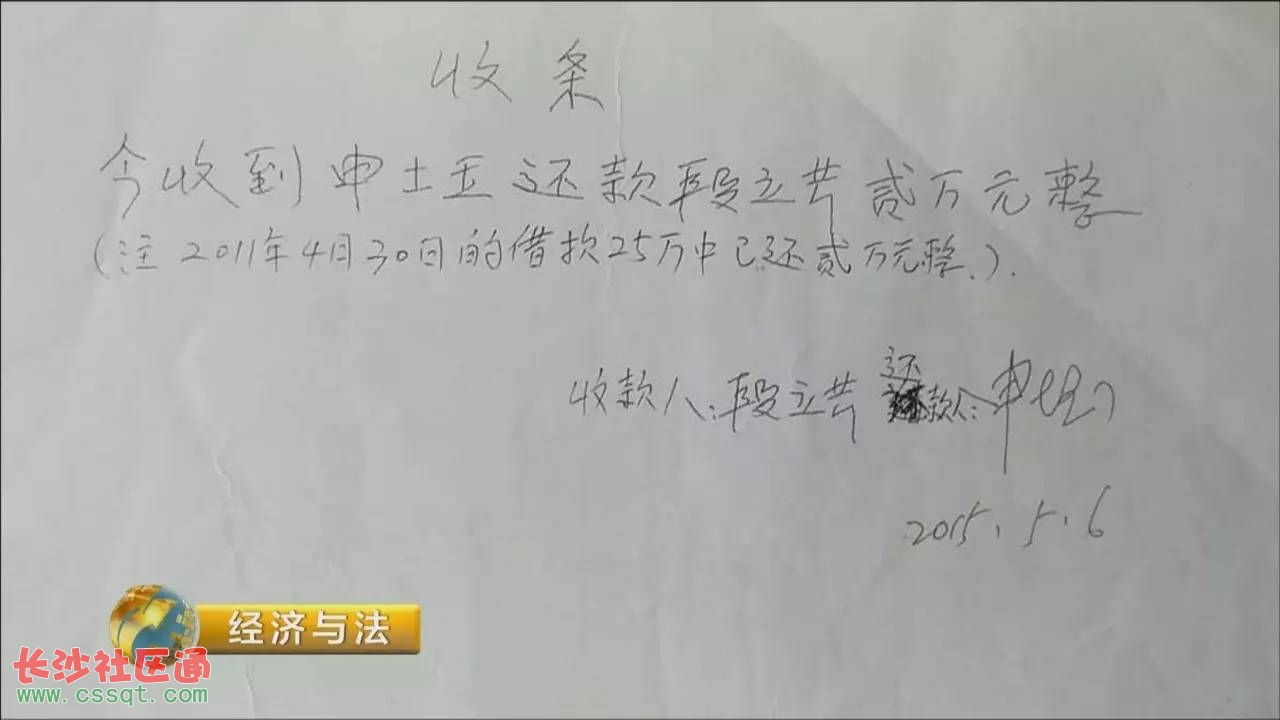 收条
今收到申土玉还款段立共贰万元整
(注 2011年4月30日的借款25万中已还贰万元整.).
收款人:段立共 还款人:申
2015.5.6
经济与法
长沙社区通
www.cssqt.com